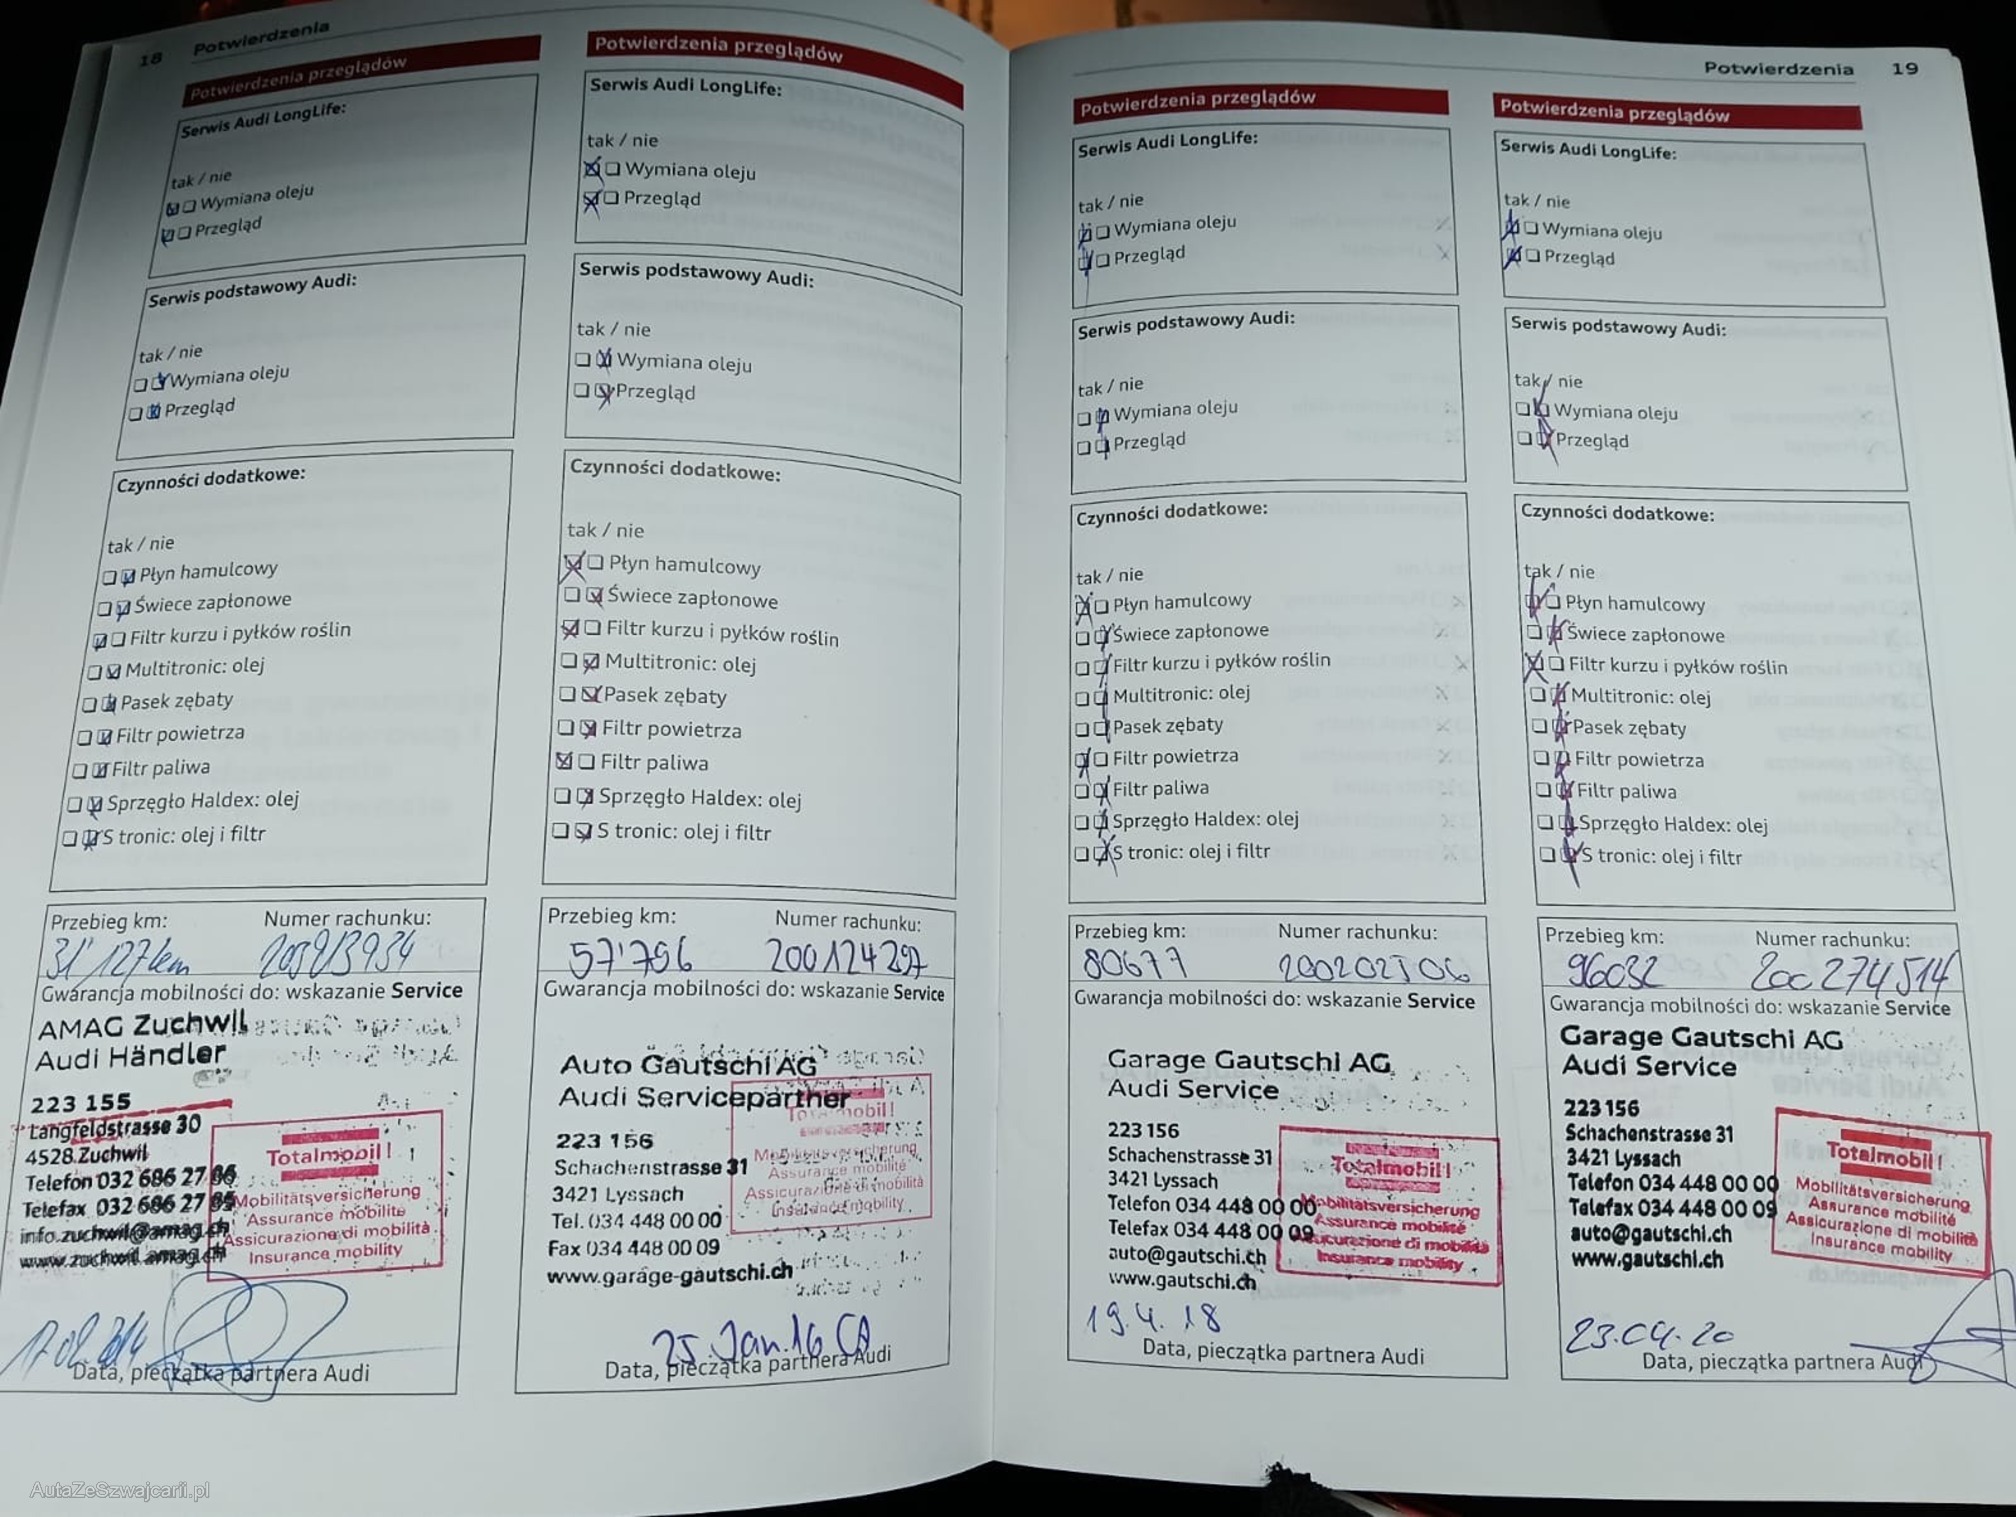 18 Potwierdzenia
Potwierdzenia przeglądów
Serwis Audi LongLife:
tak / nie
Wymiana oleju
Przegląd
Serwis podstawowy Audi:
tak / nie
Wymiana oleju
Przegląd
Czynności dodatkowe:
tak / nie
Płyn hamulcowy
Świece zapłonowe
Filtr kurzu i pyłków roślin
Multitronic: olej
Pasek zębaty
Filtr powietrza
Filtr paliwa
Sprzęgło Haldex: olej
S tronic: olej i filtr
Przebieg km: Numer rachunku:
31'127km
Gwarancja mobilności do: wskazanie Service
AMAG Zuchwil
Audi Händler
223 155
Langfeldstrasse 30
4528 Zuchwil
Telefon 032 686 27
Telefax 032 686 27
info.zuchwil@amag.ch
www.zuchwil.amag.ch
Totalmobil!
Mobilitätsversicherung
Assurance mobilité
Assicurazione di mobilità
Insurance mobility
Data, pieczątka partnera Audi
Potwierdzenia przeglądów
Serwis Audi LongLife:
tak / nie
Wymiana oleju
Przegląd
Serwis podstawowy Audi:
tak / nie
Wymiana oleju
Przegląd
Czynności dodatkowe:
tak / nie
Płyn hamulcowy
Świece zapłonowe
Filtr kurzu i pyłków roślin
Multitronic: olej
Pasek zębaty
Filtr powietrza
Filtr paliwa
Sprzęgło Haldex: olej
S tronic: olej i filtr
Przebieg km: Numer rachunku:
57'756 200124297
Gwarancja mobilności do: wskazanie Service
Auto Gautschi AG
Audi Servicepartner
223 156
Schachenstrasse 31
3421 Lyssach
Tel. 034 448 00 00
Fax 034 448 00 09
www.garage-gautschi.ch
Totalmobil!
Mobilitätsversicherung
Assurance mobilité
Assicurazione di mobilità
Insurance mobility
25. Jan. 16
Data, pieczątka partnera Audi
Potwierdzenia 19
Potwierdzenia przeglądów
Serwis Audi LongLife:
tak / nie
Wymiana oleju
Przegląd
Serwis podstawowy Audi:
tak / nie
Wymiana oleju
Przegląd
Czynności dodatkowe:
tak / nie
Płyn hamulcowy
Świece zapłonowe
Filtr kurzu i pyłków roślin
Multitronic: olej
Pasek zębaty
Filtr powietrza
Filtr paliwa
Sprzęgło Haldex: olej
S tronic: olej i filtr
Przebieg km: Numer rachunku:
80677 200202506
Gwarancja mobilności do: wskazanie Service
Garage Gautschi AG
Audi Service
223 156
Schachenstrasse 31
3421 Lyssach
Telefon 034 448 00 00
Telefax 034 448 00 09
auto@gautschi.ch
www.gautschi.ch
Totalmobil!
Mobilitätsversicherung
Assurance mobilité
Assicurazione di mobilità
Insurance mobility
19.4.18
Data, pieczątka partnera Audi
Potwierdzenia przeglądów
Serwis Audi LongLife:
tak / nie
Wymiana oleju
Przegląd
Serwis podstawowy Audi:
tak / nie
Wymiana oleju
Przegląd
Czynności dodatkowe:
tak / nie
Płyn hamulcowy
Świece zapłonowe
Filtr kurzu i pyłków roślin
Multitronic: olej
Pasek zębaty
Filtr powietrza
Filtr paliwa
Sprzęgło Haldex: olej
S tronic: olej i filtr
Przebieg km: Numer rachunku:
96032 200274514
Gwarancja mobilności do: wskazanie Service
Garage Gautschi AG
Audi Service
223 156
Schachenstrasse 31
3421 Lyssach
Telefon 034 448 00 00
Telefax 034 448 00 09
auto@gautschi.ch
www.gautschi.ch
Totalmobil!
Mobilitätsversicherung
Assurance mobilité
Assicurazione di mobilità
Insurance mobility
23.04.20
Data, pieczątka partnera Audi
AutaZeSzwajcarii.pl